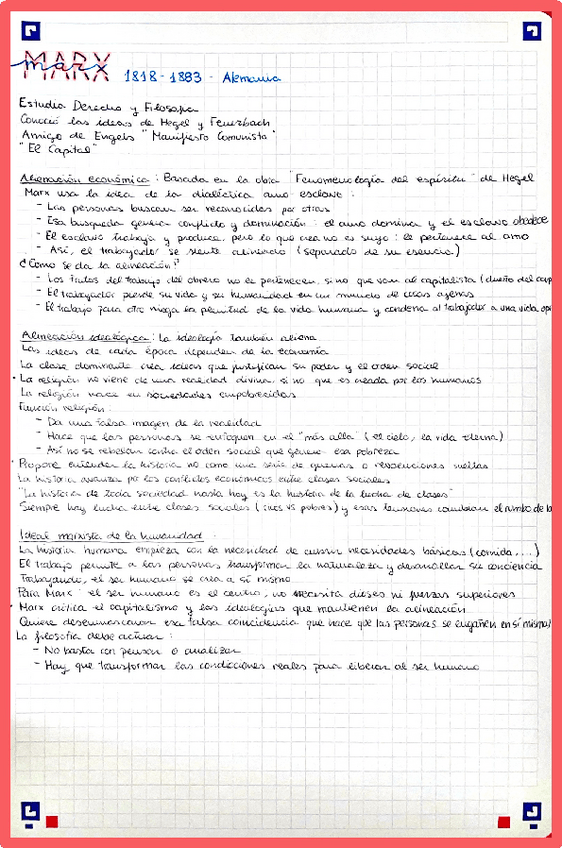 MARX
marx
1818 - 1883 - Alemania
Estudia Derecho y Filosofía
Conoció las ideas de Hegel y Feuerbach
Amigo de Engels "Manifiesto Comunista"
"El Capital"
Alienación económica: Basada en la obra "Fenomenología del espíritu" de Hegel
Marx usa la idea de la dialéctica amo-esclavo:
- Las personas buscan ser reconocidas por otras
- Esa búsqueda genera conflicto y dominación: el amo domina y el esclavo obedece
- El esclavo trabaja y produce, pero lo que crea no es suyo: le pertenece al amo
- Así, el trabajador se siente alienado (separado de su esencia)
¿Cómo se da la alineación?
- Los frutos del trabajo del obrero no le pertenecen, si no que van al capitalista (dueño del cap
- El trabajador pierde su vida y su humanidad en un mundo de cosas ajenas
- El trabajo para otro niega la plenitud de la vida humana y condena al trabajador a una vida op
Alineación ideológica: La ideología también aliena
Las ideas de cada época dependen de la economía
La clase dominante crea ideas que justifican su poder y el orden social
· La religión no viene de una realidad divina, si no que es creada por los humanos
La religión nace en sociedades empobrecidas
Función religión:
- Da una falsa imagen de la realidad
- Hace que las personas se enfoquen en el "más allá" (el cielo, la vida eterna)
- Así no se rebelan contra el orden social que genera esa pobreza
· Propone entender la historia no como una serie de guerras o revoluciones sueltas
La historia avanza por los conflictos económicos entre clases sociales
"La historia de toda sociedad hasta hoy es la historia de la lucha de clases"
Siempre hay lucha entre clases sociales (ricos vs pobres) y esas tensiones cambian el rumbo de la
Ideal marxista de la humanidad:
La historia humana empieza con la necesidad de cubrir necesidades básicas (comida, ...)
El trabajo permite a las personas transformar la naturaleza y desarrollar su conciencia
Trabajando, el ser humano se crea a sí mismo
Para Marx: el ser humano es el centro, no necesita dioses ni fuerzas superiores
· Marx critica el capitalismo y las ideologías que mantienen la alineación
Quiere desenmascarar esa falsa coincidencia que hace que las personas se engañen en sí mismas
La filosofía debe actuar:
- No basta con pensar o analizar
- Hay que transformar las condiciones reales para liberar al ser humano